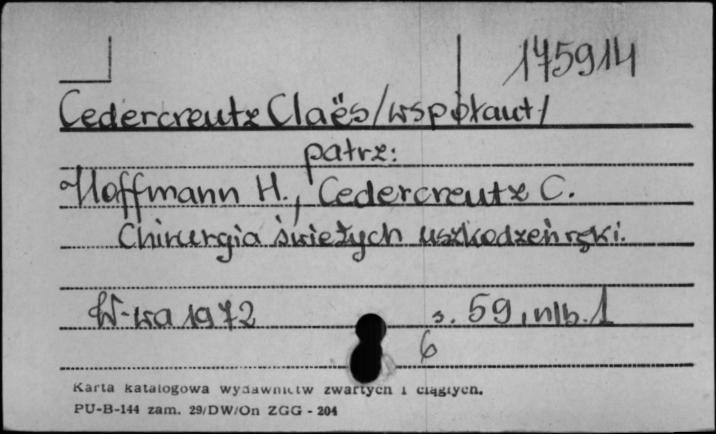 175914
Cedercreutz Claës/współaut/
patrz:
Hoffmann H., Cedercreutz C.
Chirurgia świeżych uszkodzeń ręki.
W-wa 1972 s. 59, nlb. 1
6
Karta katalogowa wydawnictw zwartych i ciągłych.
PU-B-144 zam. 29/DW/On ZGG - 204